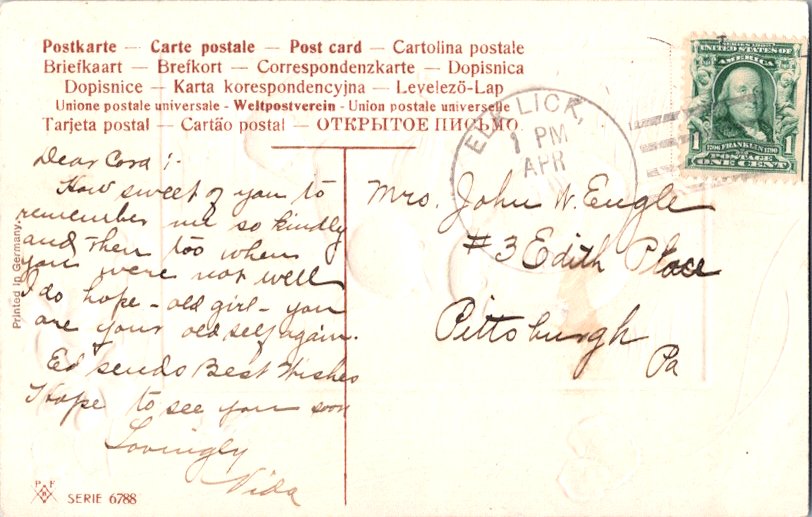 Postkarte — Carte postale — Post card — Cartolina postale
Briefkaart — Brefkort — Correspondenzkarte — Dopisnica
Dopisnice — Karta korespondencyjna — Levelező-Lap
Unione postale universale - Weltpostverein - Union postale universelle
Tarjeta postal — Cartão postal — ОТКРЫТОЕ ПИСЬМО
SERIES 1902
UNITED STATES OF
AMERICA
1706 FRANKLIN 1790
1 POSTAGE 1
ONE CENT
ELK LICK,
1 PM
APR
Dear Cora ;-
How sweet of you to
remember me so kindly
and then too when
you were not well
I do hope - old girl - you
are your old self again.
Ed sends Best Wishes
I hope to see you soon
Lovingly
Vida
Mrs. John W. Engle
#3 Edith Place
Pittsburgh
Pa
Printed in Germany.
P F B
SERIE 6788